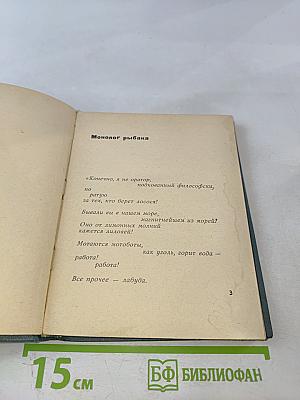 Монолог рыбака
«Конечно, я не оратор,
подкованный философски,
но
ратую
за тех, кто берет лосося!
Бывали вы в нашем море,
магнитнейшем из морей?
Оно от лимонных молний
кажется лиловей!
Мотаются мотоботы,
как уголь, горит вода —
работа!
работа!
Все прочее — лабуда.
3
15 см
БФ БИБЛИОФАН